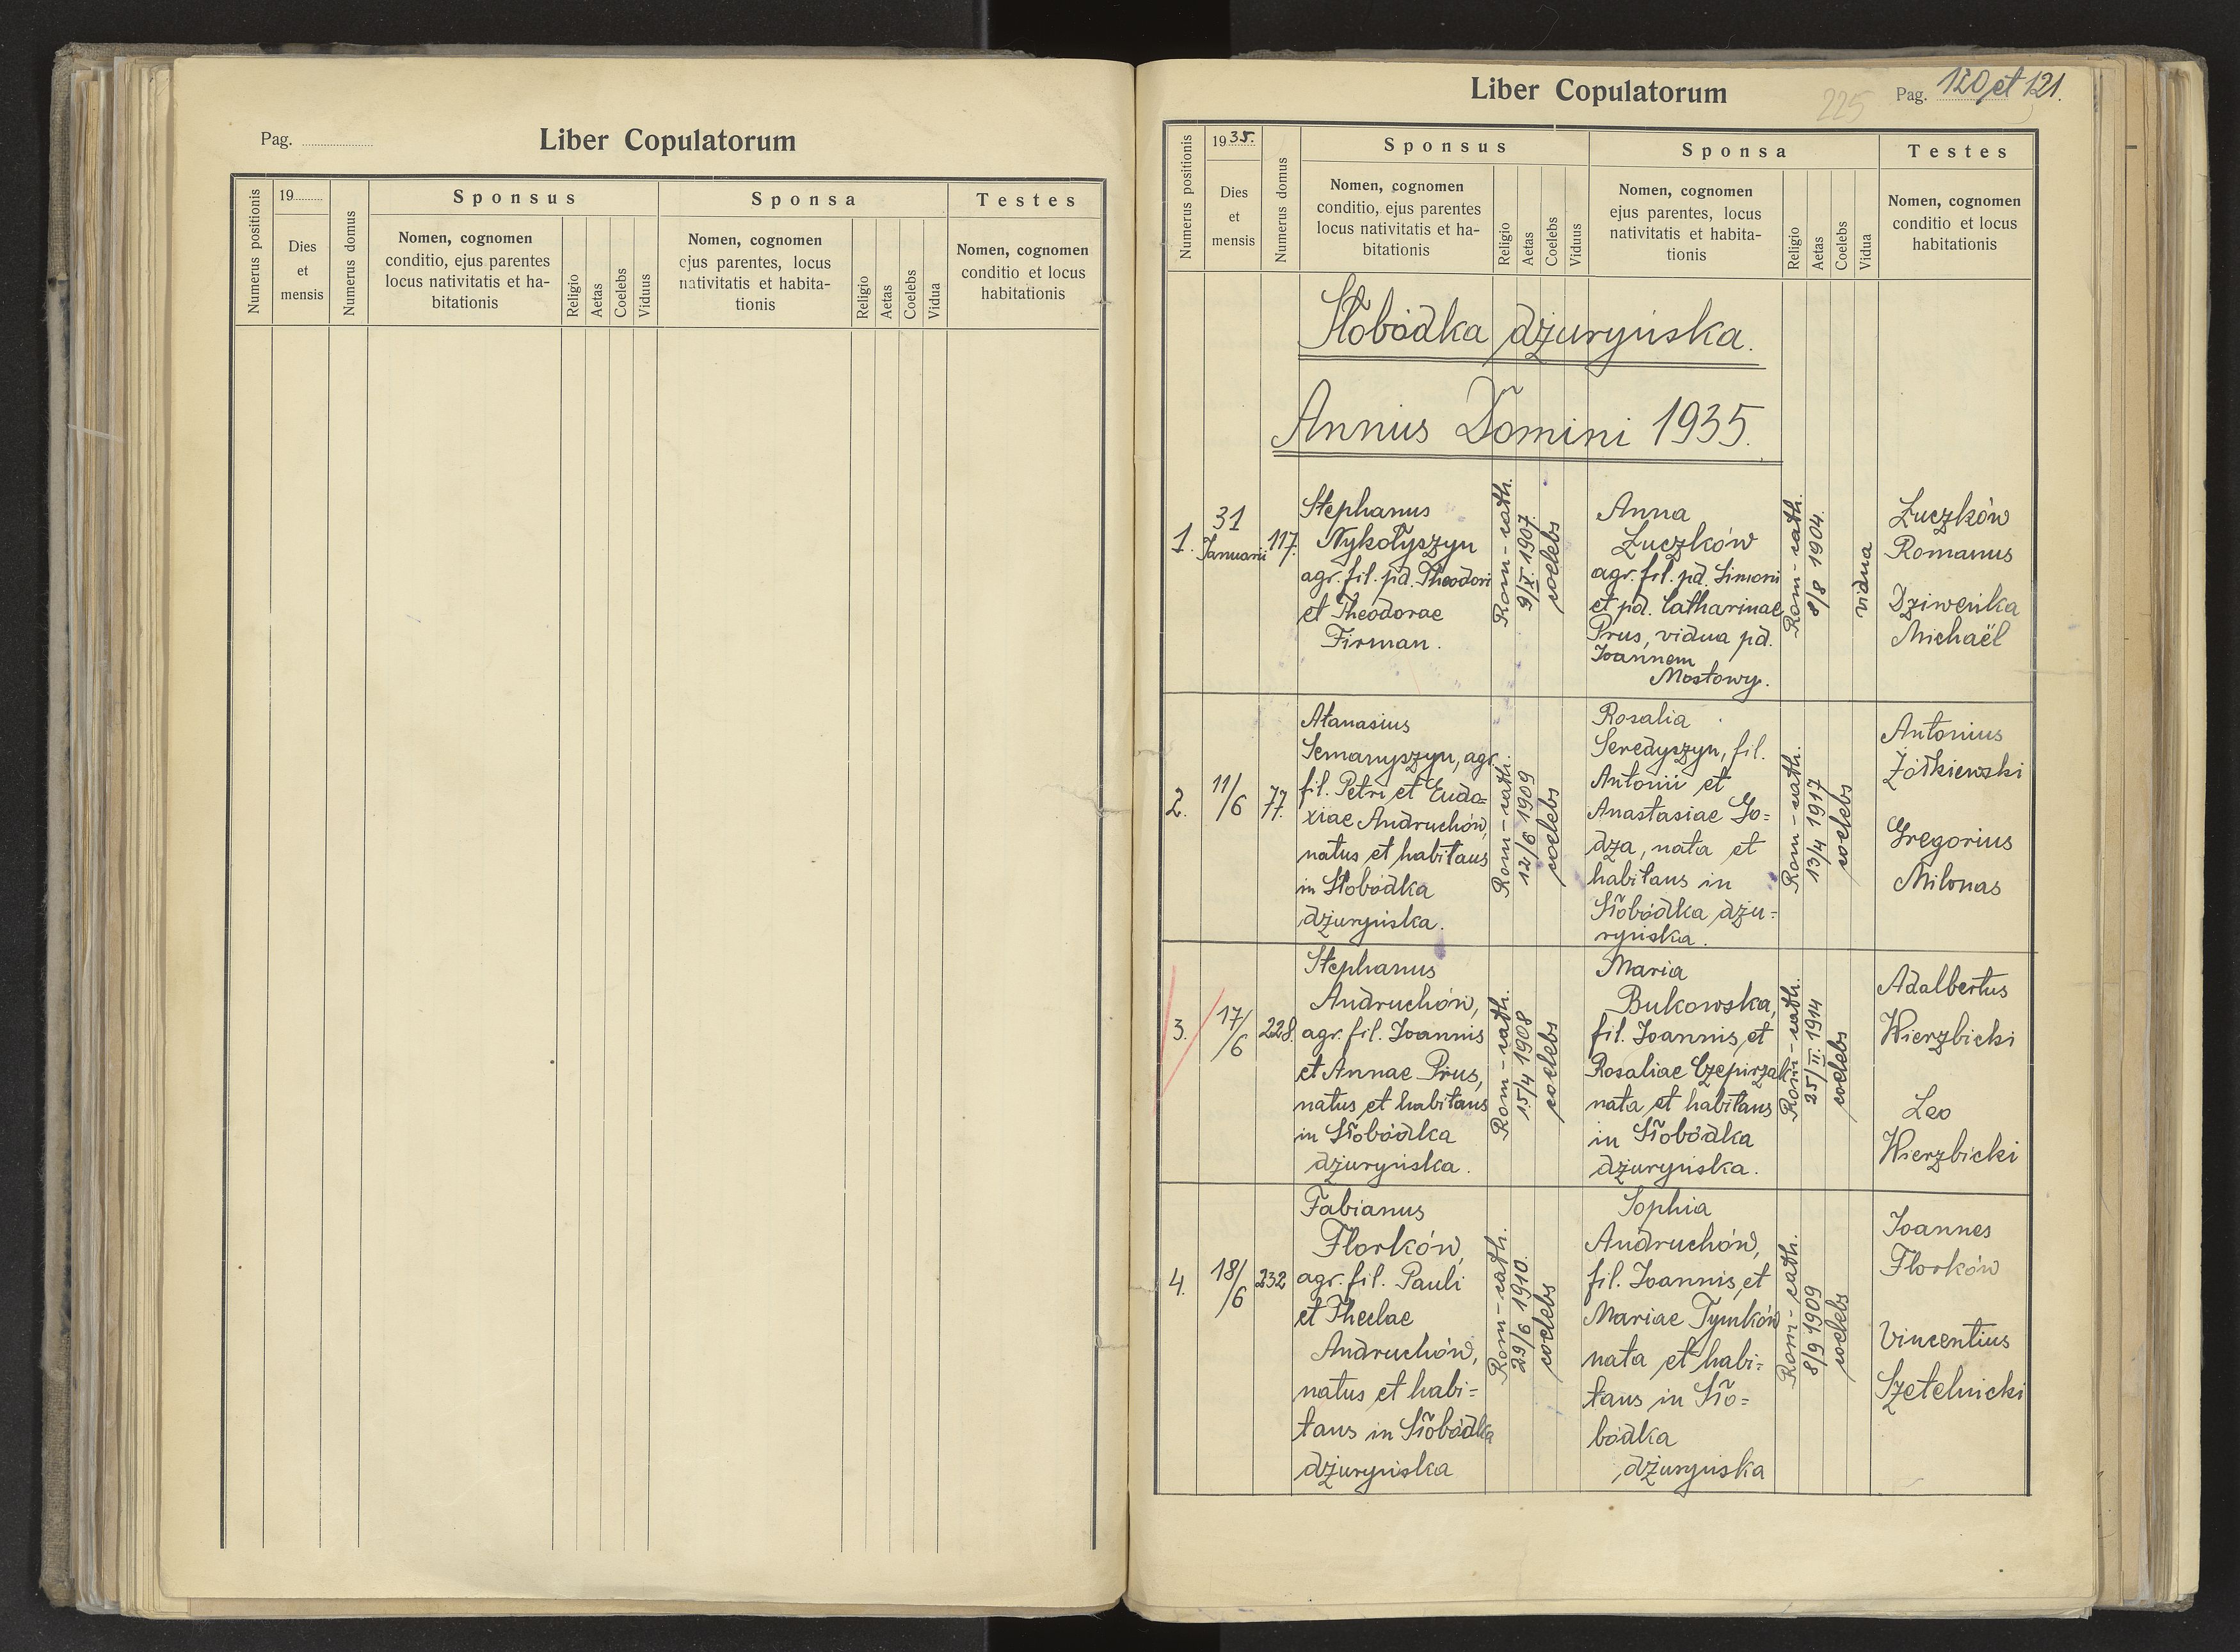 Pag.
Liber Copulatorum
Numerus positionis
19
Dies
et
mensis
Numerus domus
Sponsus
Nomen, cognomen
conditio, ejus parentes
locus nativitatis et ha-
bitationis
Religio
Aetas
Coelebs
Viduus
Sponsa
Nomen, cognomen
ejus parentes, locus
nativitatis et habita-
tionis
Religio
Aetas
Coelebs
Vidua
Testes
Nomen, cognomen
conditio et locus
habitationis
Liber Copulatorum
225
Pag. 120 et 121.
Numerus positionis
1935.
Dies
et
mensis
Numerus domus
Sponsus
Nomen, cognomen
conditio, ejus parentes
locus nativitatis et ha-
bitationis
Religio
Aetas
Coelebs
Viduus
Sponsa
Nomen, cognomen
ejus parentes, locus
nativitatis et habita-
tionis
Religio
Aetas
Coelebs
Vidua
Testes
Nomen, cognomen
conditio et locus
habitationis
Słobódka dżuryńska.
Annus Domini 1935.
1.
31
Januarii
117.
Stephanus
Nykołyszyn
agr. fil. pd. Theodori
et Theodorae
Firman.
Rom-cath.
9/X. 1907.
coelebs
Anna
Łuczków
agr. fil. pd. Simoni
et pd. Catharinae
Prus, vidua pd.
Joannem
Mostowy.
Rom-cath.
8/8 1904.
vidua
Łuczków
Romanus
Dziweńka
Michaël
2.
11/6
77.
Atanasius
Semanyszyn, agr.
fil. Petri et Eudo=
xiae Andruchów,
natus et habitans
in Słobódka
dżuryńska.
Rom-cath.
12/6 1909
coelebs
Rosalia
Seredyszyn, fil.
Antonii et
Anastasiae Go=
dza, nata et
habitans in
Słobódka dżu=
ryńska.
Rom-cath.
13/4 1917
coelebs
Antonius
Żółkiewski
Gregorius
Milonas
3.
17/6
228.
Stephanus
Andruchów,
agr. fil. Joannis
et Annae Prus,
natus et habitans
in Słobódka
dżuryńska.
Rom-cath.
15/4 1908
coelebs
Maria
Bukowska,
fil. Joannis, et
Rosaliae Czepirzak
nata et habitans
in Słobódka
dżuryńska.
Rom-cath.
25/II. 1914
coelebs
Adalbertus
Wierzbicki
Leo
Wierzbicki
4.
18/6
232
Fabianus
Florków,
agr. fil. Pauli
et Theclae
Andruchów,
natus et habi=
tans in Słobódka
dżuryńska
Rom-cath.
29/6 1910.
coelebs
Sophia
Andruchów,
fil. Joannis, et
Mariae Tymków
nata et habi=
tans in Sło=
bódka
dżuryńska
Rom-cath.
8/9 1909
coelebs
Joannes
Florków
Vincentius
Szetelnicki